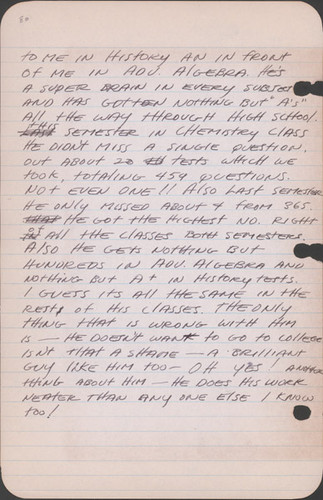 80
to me in History an in front
of me in Adv. Algebra. He's
a super brain in every subject
and has gotten nothing but "A's"
all the way through high school.
This semester in Chemistry class
he didn't miss a single question.
out about 20 tests which we
took, totaling 454 questions.
Not even one!! Also last semester
he only missed about 4 from 365.
He got the highest no. right
of all the classes both semesters.
Also he gets nothing but
hundreds in Adv. Algebra and
nothing but A+ in History tests.
I guess its all the same in the
rest of his classes. The only
thing that is wrong with him
is — he doesn't want to go to college
isn't that a shame — a brilliant
guy like him too — Oh yes! another
thing about him — he does his work
neater than any one else I know
too!